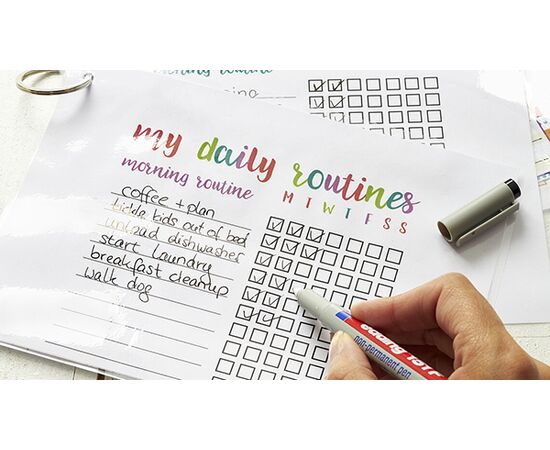 morning routine
my daily routines
morning routine
M T W T F S S
coffee + plan
tickle kids out of bed
unload dishwasher
start laundry
breakfast cleanup
walk dog
edding
non-permanent pen